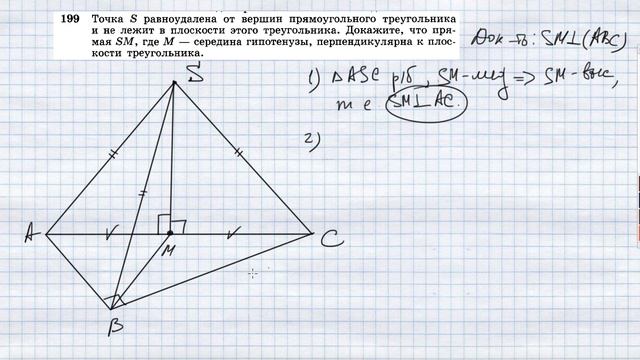 199 Точка S равноудалена от вершин прямоугольного треугольника
и не лежит в плоскости этого треугольника. Докажите, что пря-
мая SM, где M — середина гипотенузы, перпендикулярна к плос-
кости треугольника.
Док-ть: SM⊥(ABC)
1) △ASC р/б, SM-мед ⇒ SM-выс,
т е SM⊥AC.
2)
S
A
M
C
B